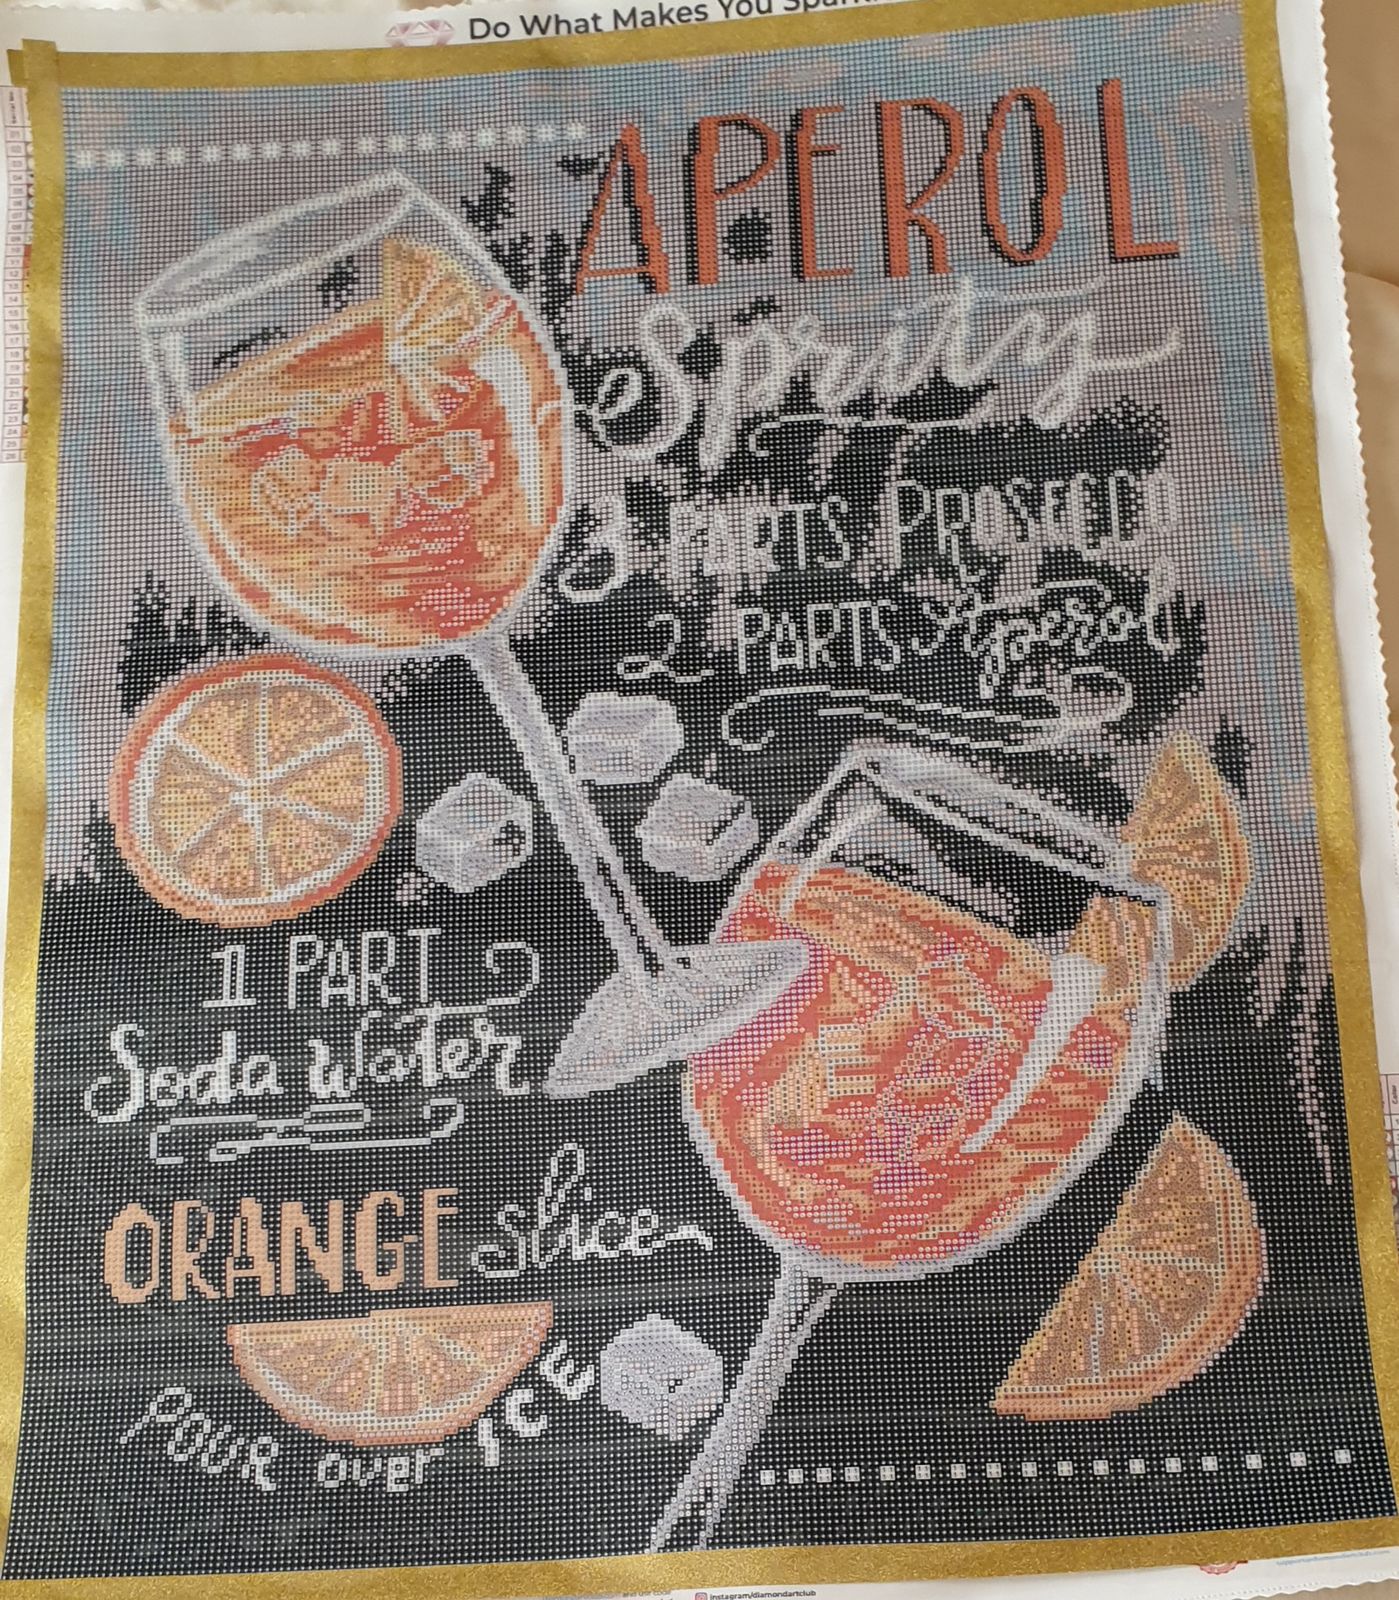 Do What Makes You
APEROL
Spritz
3 PARTS PROSECCO
2 PARTS Aperol
1 PART
Soda Water
ORANGE slice
POUR over ICE
instagram/diamondartclub